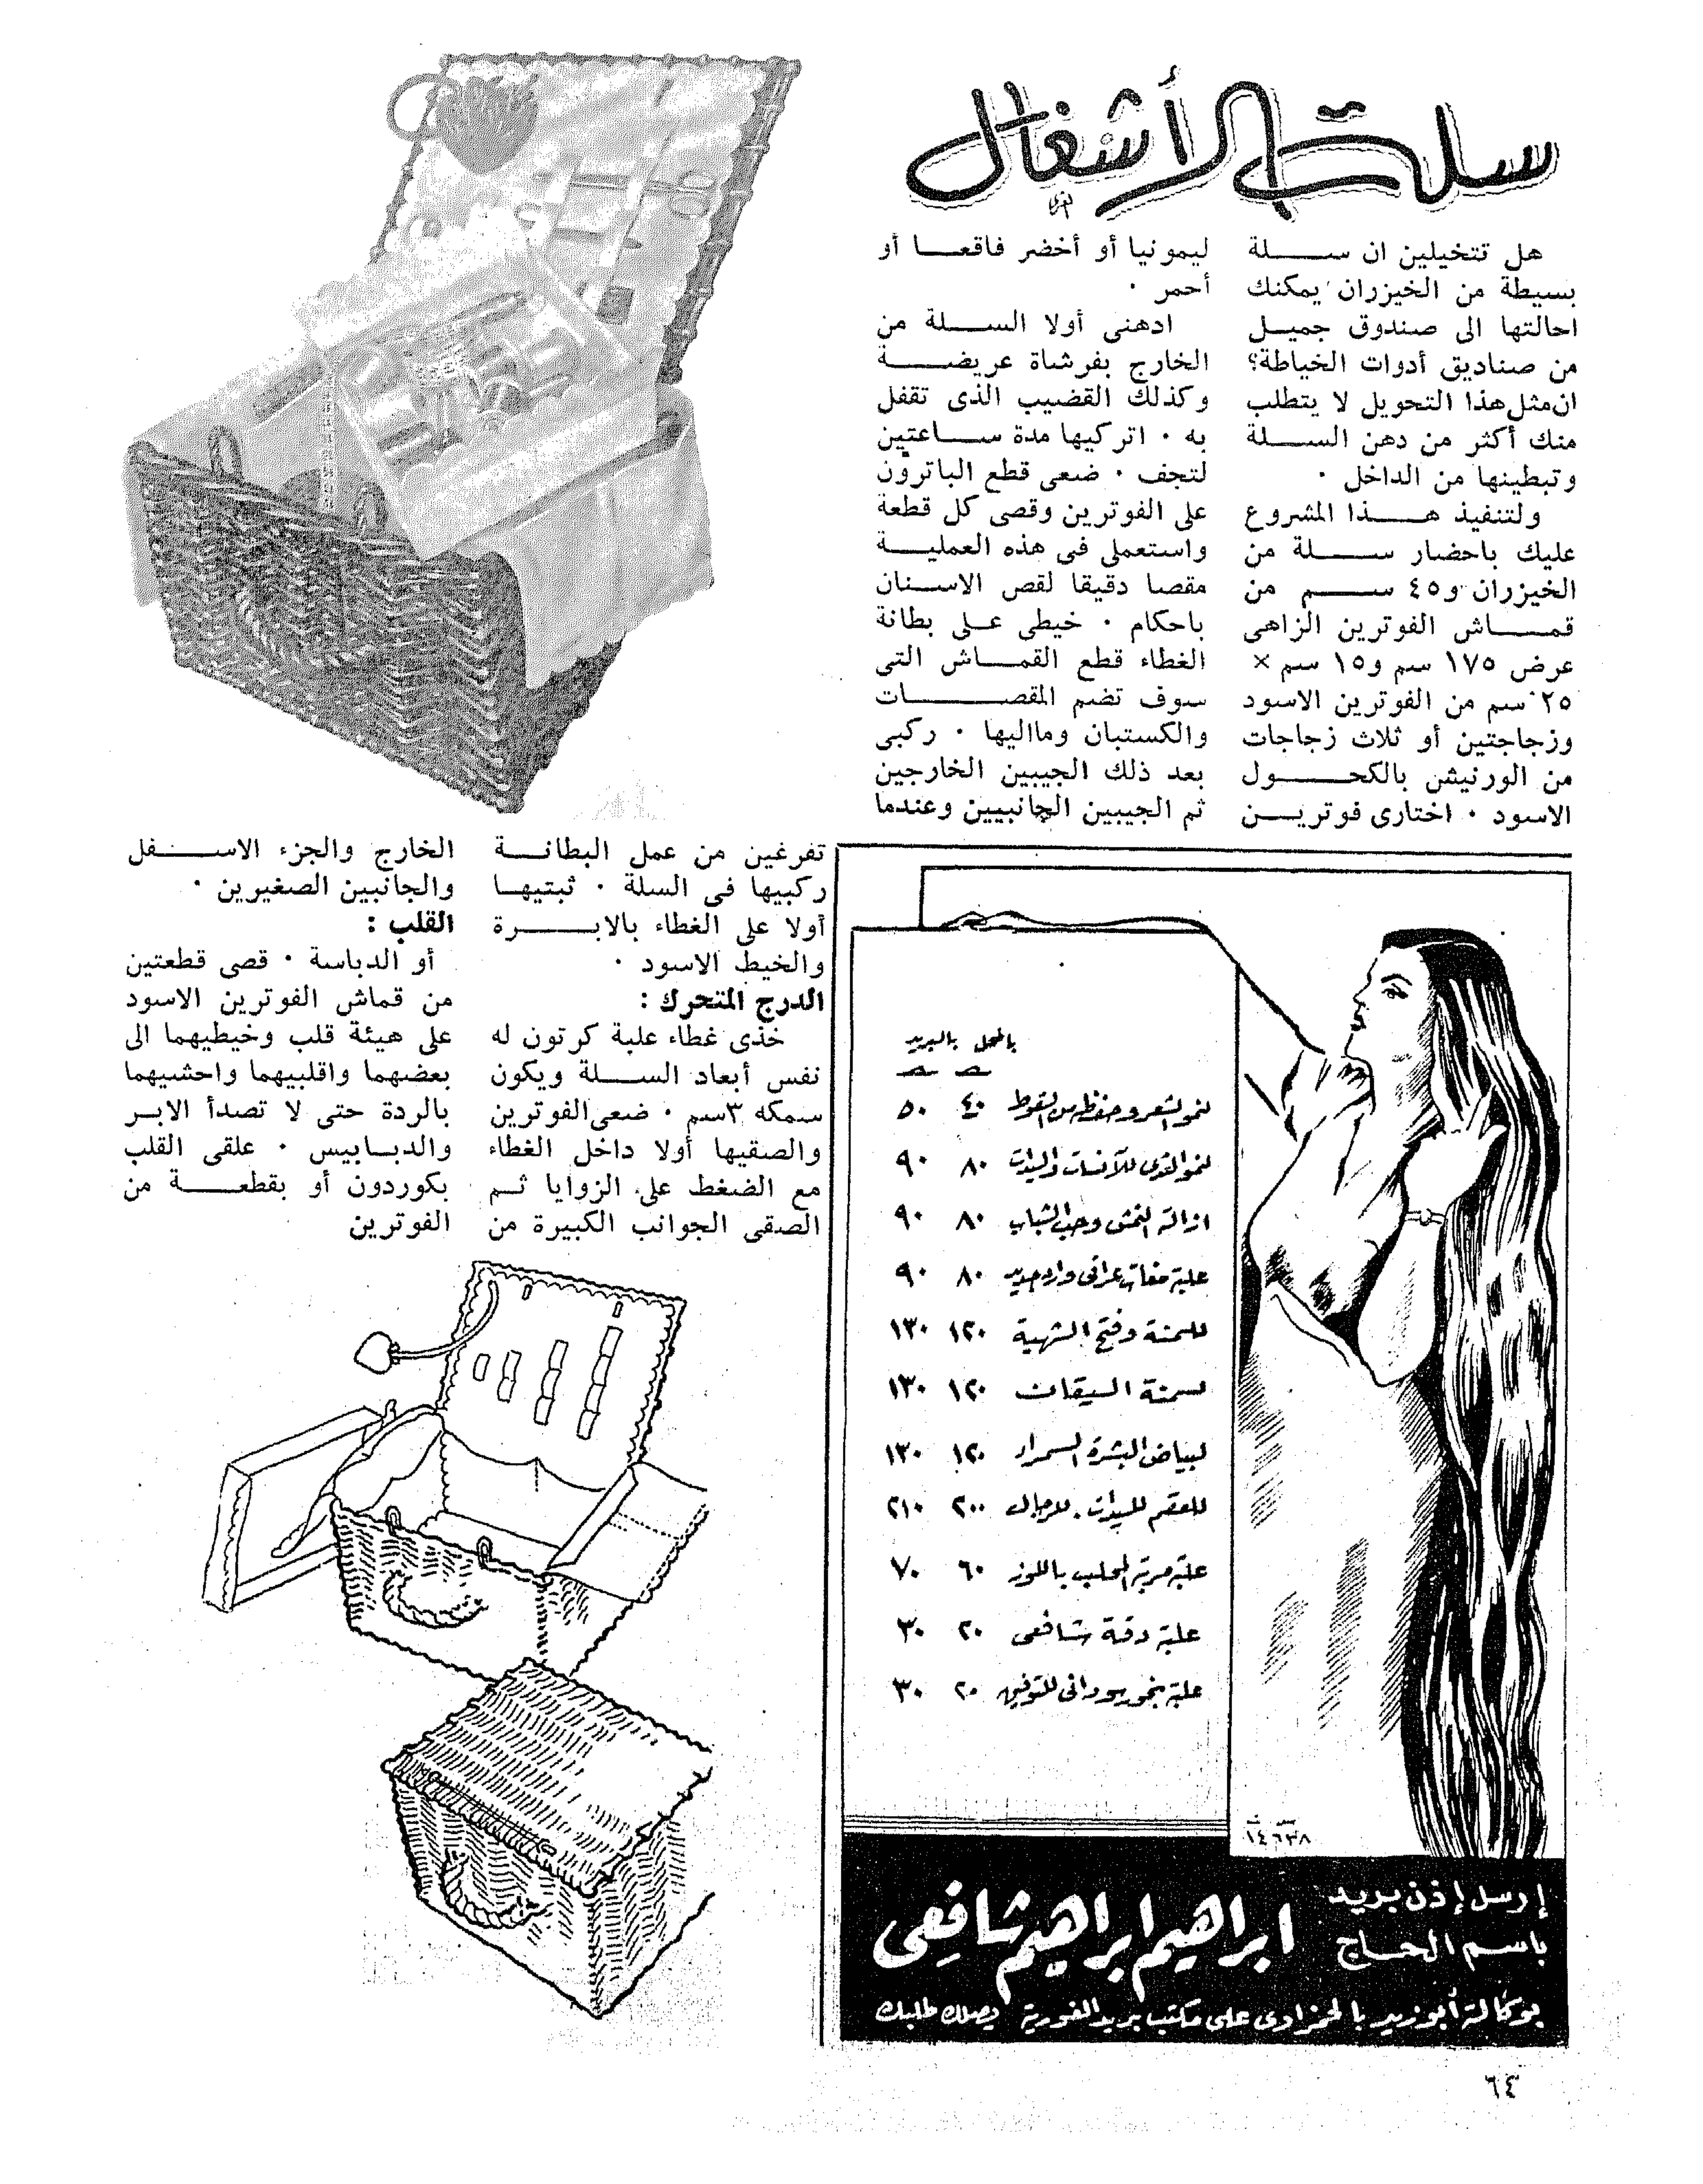 سلة الأشغال
هل تتخيلين ان سلة
بسيطة من الخيزران يمكنك
احالتها الى صندوق جميل
من صناديق أدوات الخياطة؟
ان مثل هذا التحويل لا يتطلب
منك أكثر من دهن السلة
وتبطينها من الداخل ٠
ولتنفيذ هذا المشروع
عليك باحضار سلة من
الخيزران و٤٥ سم من
قماش الفوترين الزاهى
عرض ١٧٥ سم و١٥ سم ×
٢٥ سم من الفوترين الاسود
وزجاجتين أو ثلاث زجاجات
من الورنيش بالكحول
الاسود ٠ اختارى فوترين
ليمونيا أو أخضر فاقعا أو
أحمر ٠
ادهنى أولا السلة من
الخارج بفرشاة عريضة
وكذلك القضيب الذى تقفل
به ٠ اتركيها مدة ساعتين
لتجف ٠ ضعى قطع الباترون
على الفوترين وقصى كل قطعة
واستعملى فى هذه العملية
مقصا دقيقا لقص الاسنان
باحكام ٠ خيطى على بطانة
الغطاء قطع القماش التى
سوف تضم المقصات
والكستبان وما اليها ٠ ركبى
بعد ذلك الجيبين الخارجين
ثم الجيبين الجانبيين وعندما
تفرغين من عمل البطانة
ركبيها فى السلة ٠ ثبتيها
أولا على الغطاء بالابرة
والخيط الاسود ٠
الدرج المتحرك :
خذى غطاء علبة كرتون له
نفس أبعاد السلة ويكون
سمكه ٣سم ٠ ضعى الفوترين
والصقيها أولا داخل الغطاء
مع الضغط على الزوايا ثم
الصقى الجوانب الكبيرة من
الخارج والجزء الاسفل
والجانبين الصغيرين ٠
القلب :
أو الدباسة ٠ قصى قطعتين
من قماش الفوترين الاسود
على هيئة قلب وخيطيهما الى
بعضهما واقلبيهما واحشيهما
بالردة حتى لا تصدأ الابر
والدبابيس ٠ علقى القلب
بكوردون أو بقطعة من
الفوترين
بالمحل بالبريد
لنمو الشعر وحفظه من السقوط ٤٠ ٥٠
لنمو الثدى للآنسات والسيدات ٨٠ ٩٠
ازالة النمش وحب الشباب ٨٠ ٩٠
علبة مغات عراقى وارد جديد ٨٠ ٩٠
للسمنة وفتح الشهية ١٢٠ ١٣٠
لسمنة السيقان ١٢٠ ١٣٠
لبياض البشرة السمراء ١٢٠ ١٣٠
للعقم للسيدات . للرجال ٢٠٠ ٢١٠
علبة مربة المحلب باللوز ٦٠ ٧٠
علبة دقة شافعى ٢٠ ٣٠
علبة بخور سودانى للتوفيق ٢٠ ٣٠
س ت
١٤٦٣٨
إرسل إذن بريد
باسم الحاج
ابراهيم ابراهيم شافعى
بوكالة أبو زيد بالحمزاوى على مكتب بريد الغورية يصلك طلبك
٦٤